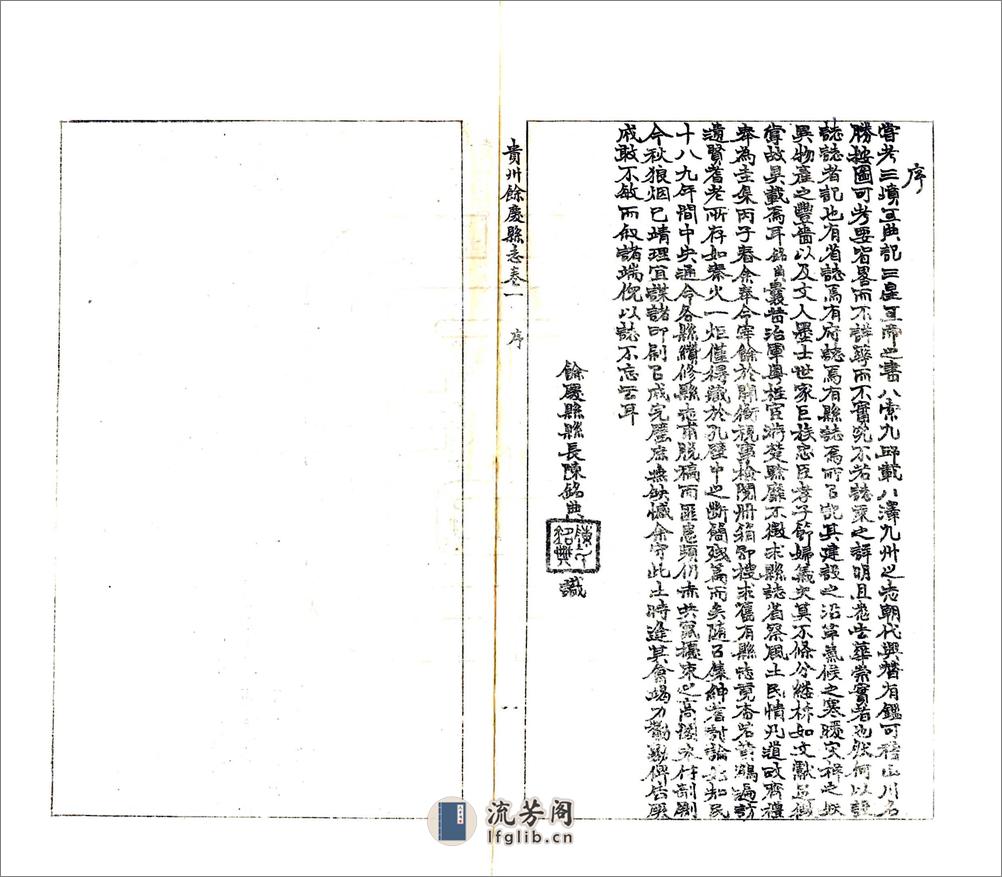 序
嘗考三墳五典記三皇五帝之書八索九邱載八澤九州之志朝代興替有鑑可稽山川名
勝按圖可考要皆畧而不詳華而不實究不若誌乘之詳明且卷去華崇實者也然何以謂
誌誌者記也有省誌焉有府誌焉有縣誌焉所以記其建設之沿革氣候之寒暖災祥之
異物產之豐嗇以及文人墨士世家巨族忠臣孝子節婦義夫莫不條分縷析如文獻足徵
掌故具載焉耳銘典曩昔治軍粵桂宦游楚黔靡不徵求縣誌省察風土民情凡道政齊禮
奉為圭臬丙子春余奉令宰餘於開衙視事檢閱冊籍即搜求舊有縣志竟杳若黃鶴遍訪
遺賢耆老所存如秦火一炬僅得藏於孔壁中之斷簡殘篇而矣隨召集紳耆討論始知民
十八九年間中央通令各縣續修縣志甫脫稿而匪患頻仍赤共竄擾束之高閣未付剞劂
今秋狼烟已靖理宜謀諸印刷以成完璧庶無缺憾余守此土時逢其會竭力勸勷俾告厥
成敢不敏而叙諸端倪以誌不忘云耳
餘慶縣縣長陳銘典
識
貴州餘慶縣志卷一
序
一
流芳阁
lfglib.cn